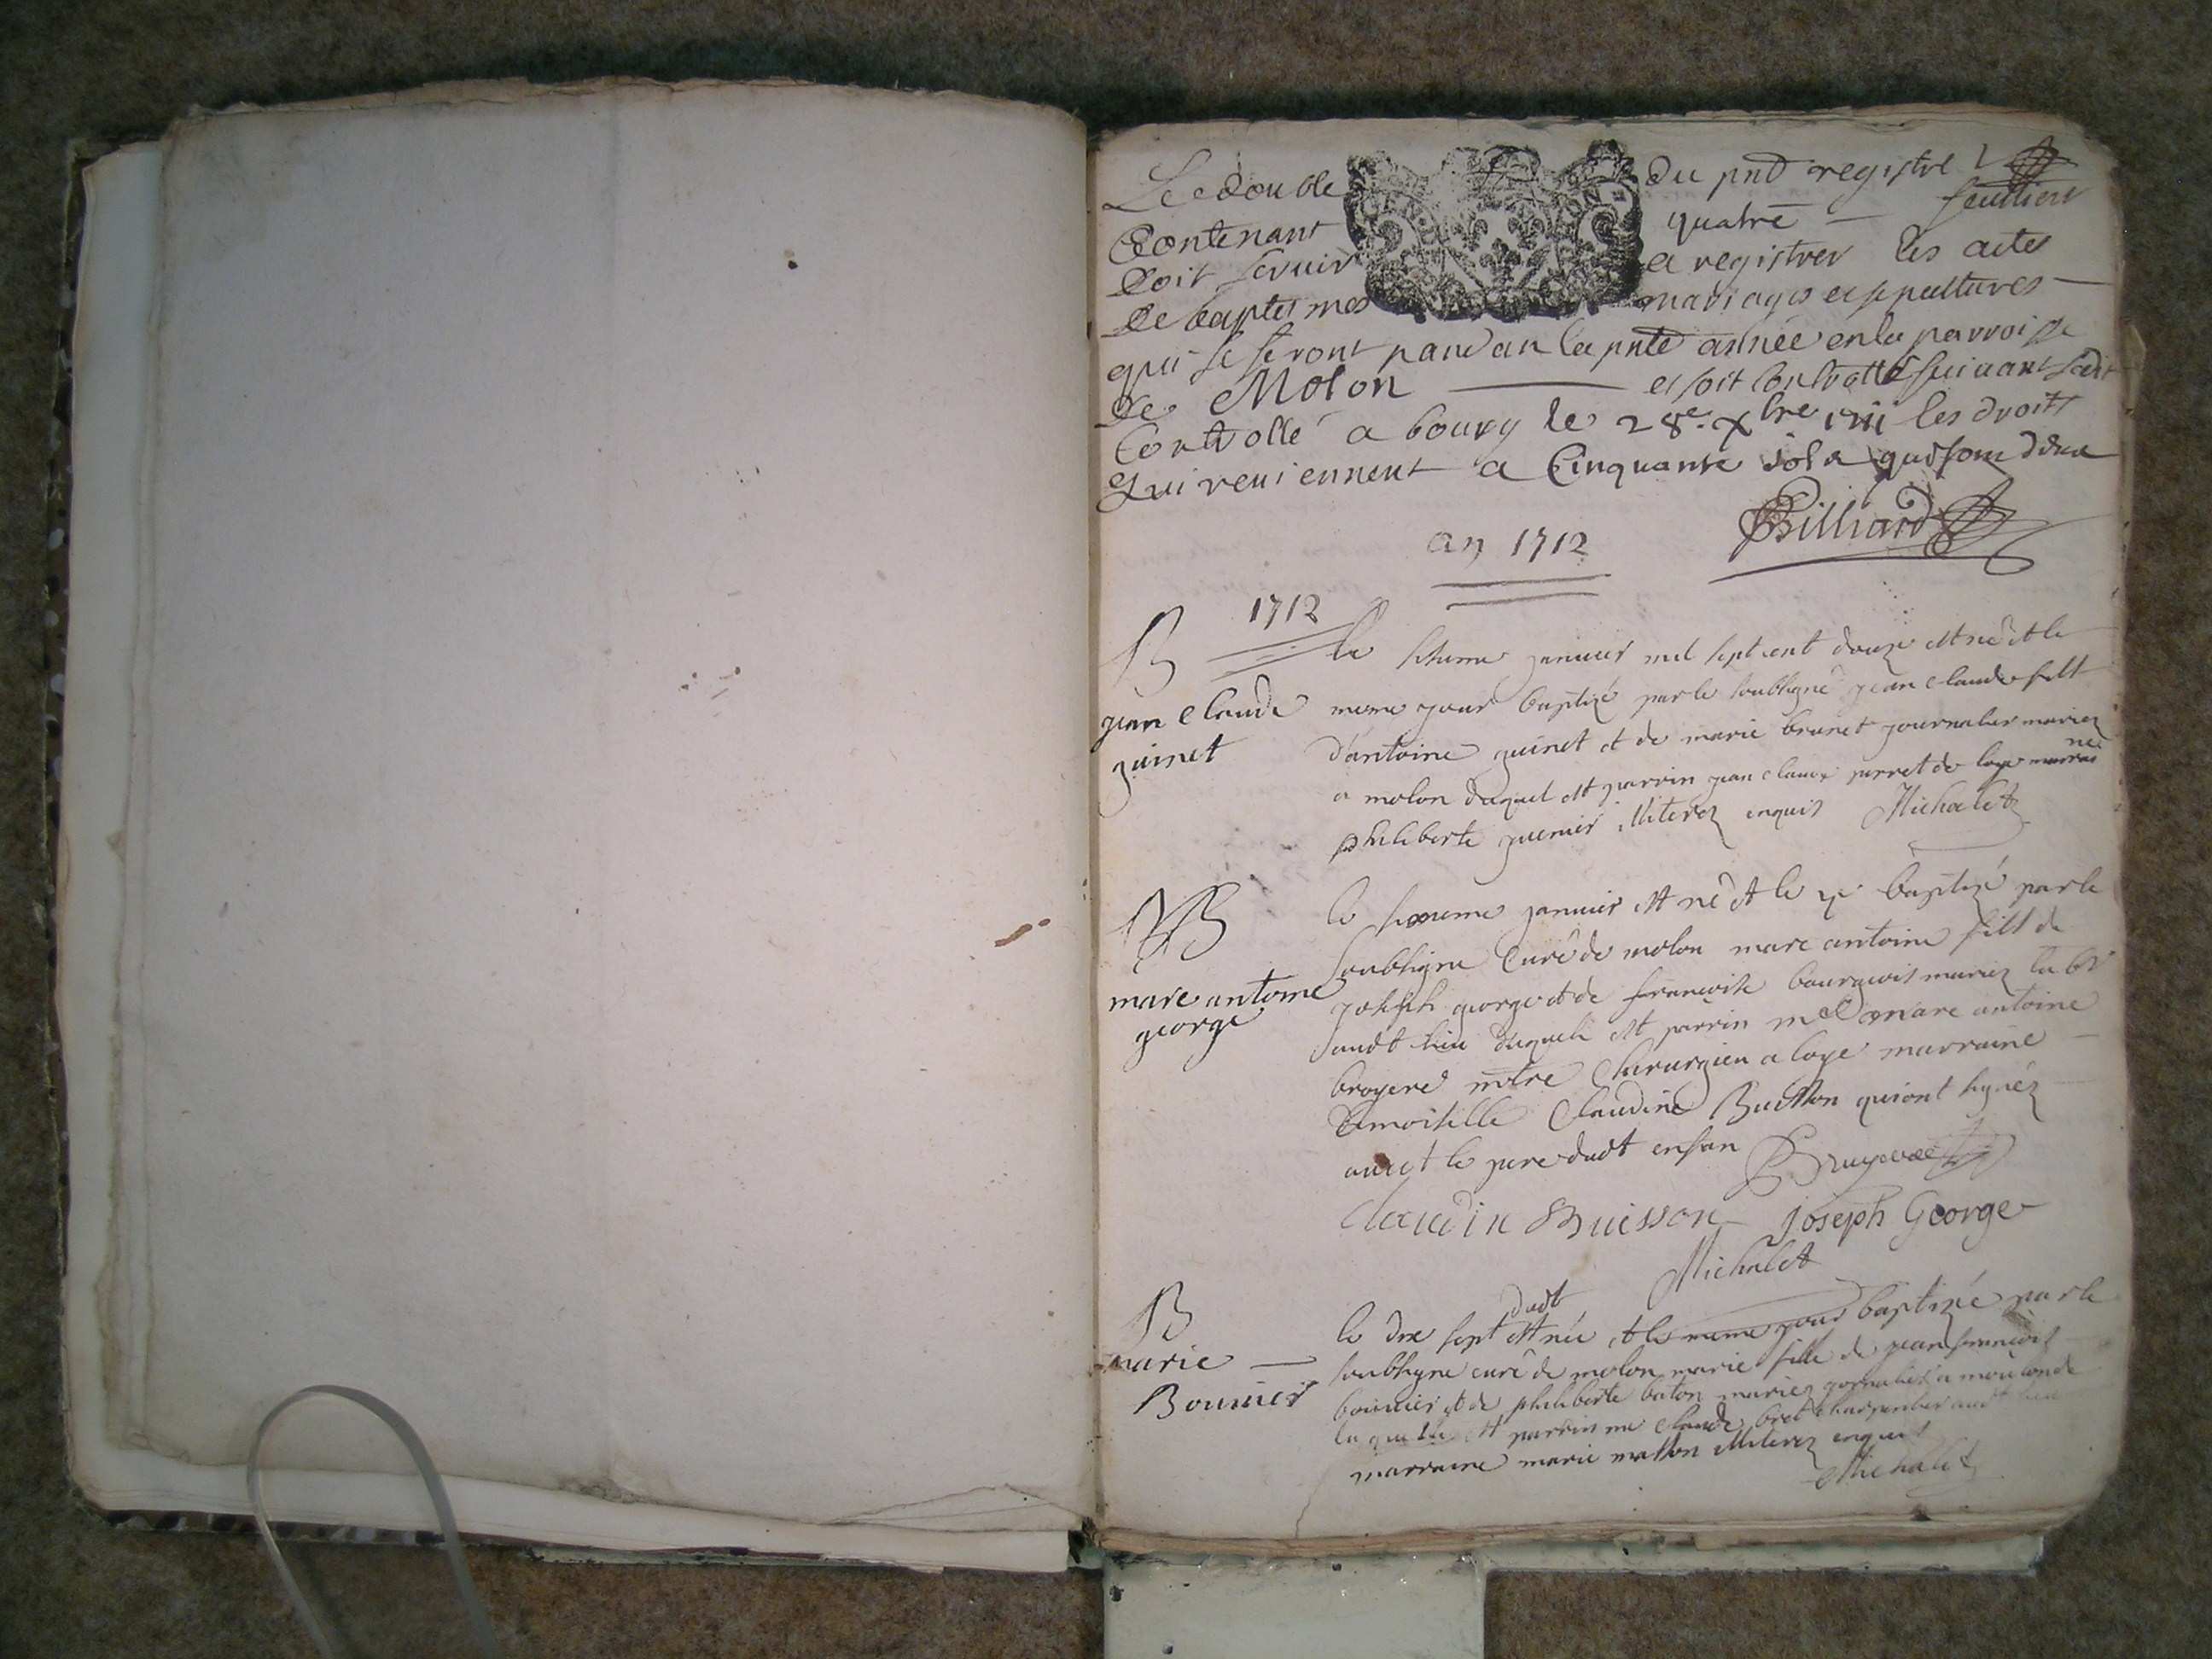 Le double du pnt registre 1
Contenant quatre feuilliets
Doit servir a registrer les actes
De baptesmes mariages et sepultures
qui se feront pandan la pnte année en la parroisse
De Molon et soit controllé suivant
Controllé a bourg le 28e xbre 1711 les droits
qui reviennent a Cinquante sols
Billiard
an 1712
B 1712
jean claude
guinet
Le janvier mil sept cent douze est né et le
meme jour baptizé par le soubsigné jean claude fils
d'antoine guinet et de marie brunet journalier mariez
a molon duquel est parrin jean claude perret de loye marrai
ne
philiberte illiterez enquis Michalet
B
marc antoine
george
le janvier est né et le baptizé par le
soubsigne curé de molon marc antoine fils de
joseph george et de francoise bourgeois mariez
audt lieu duquel est parrin marc antoine
broyere mtre chirurgien a loye marraine
Demoiselle Claudine Buisson qui ont signéz
avect le pere dudt enfan Bruyere
claudin Buisson Joseph George
Michalet
B
marie
Bounier
dudt
le dix sept est née et le meme jour baptizée par le
soubsigne curé de molon marie fille de jean francois
bounier et de philiberte baton mariez
laquelle est parrin me claude bret charpentier audt lieu
marraine marie masson illiterez enquis
Michalet